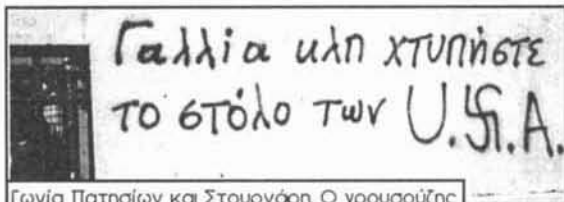 Γαλλία κλπ χτυπήστε
το στόλο των U.卐.A.
Γωνία Πατησίων και Στουρνάρη. Ο χρυμσούζης